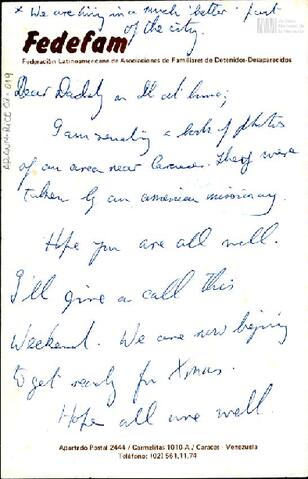 * We are living in a much "better" part
of the city.
Fedefam
Federación Latinoamericana de Asociaciones de Familiares de Detenidos-Desaparecidos
Dear Daddy an all at home;
I am sending a book of photos
of an area near Caracas. They were
taken by an american missionary.
Hope you are all well.
I'll give a call this
Weekend. We are now begining
to get ready for Xmas.
Hope all are well.
Apartado Postal 2444 / Carmelitas 1010-A / Caracas - Venezuela
Teléfono: (02) 561.11.74